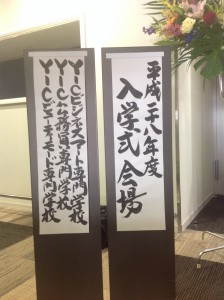 平成二十八年度
入学式会場
YICビジネスアート専門学校
YIC公務員専門学校
YICビューティモード専門学校